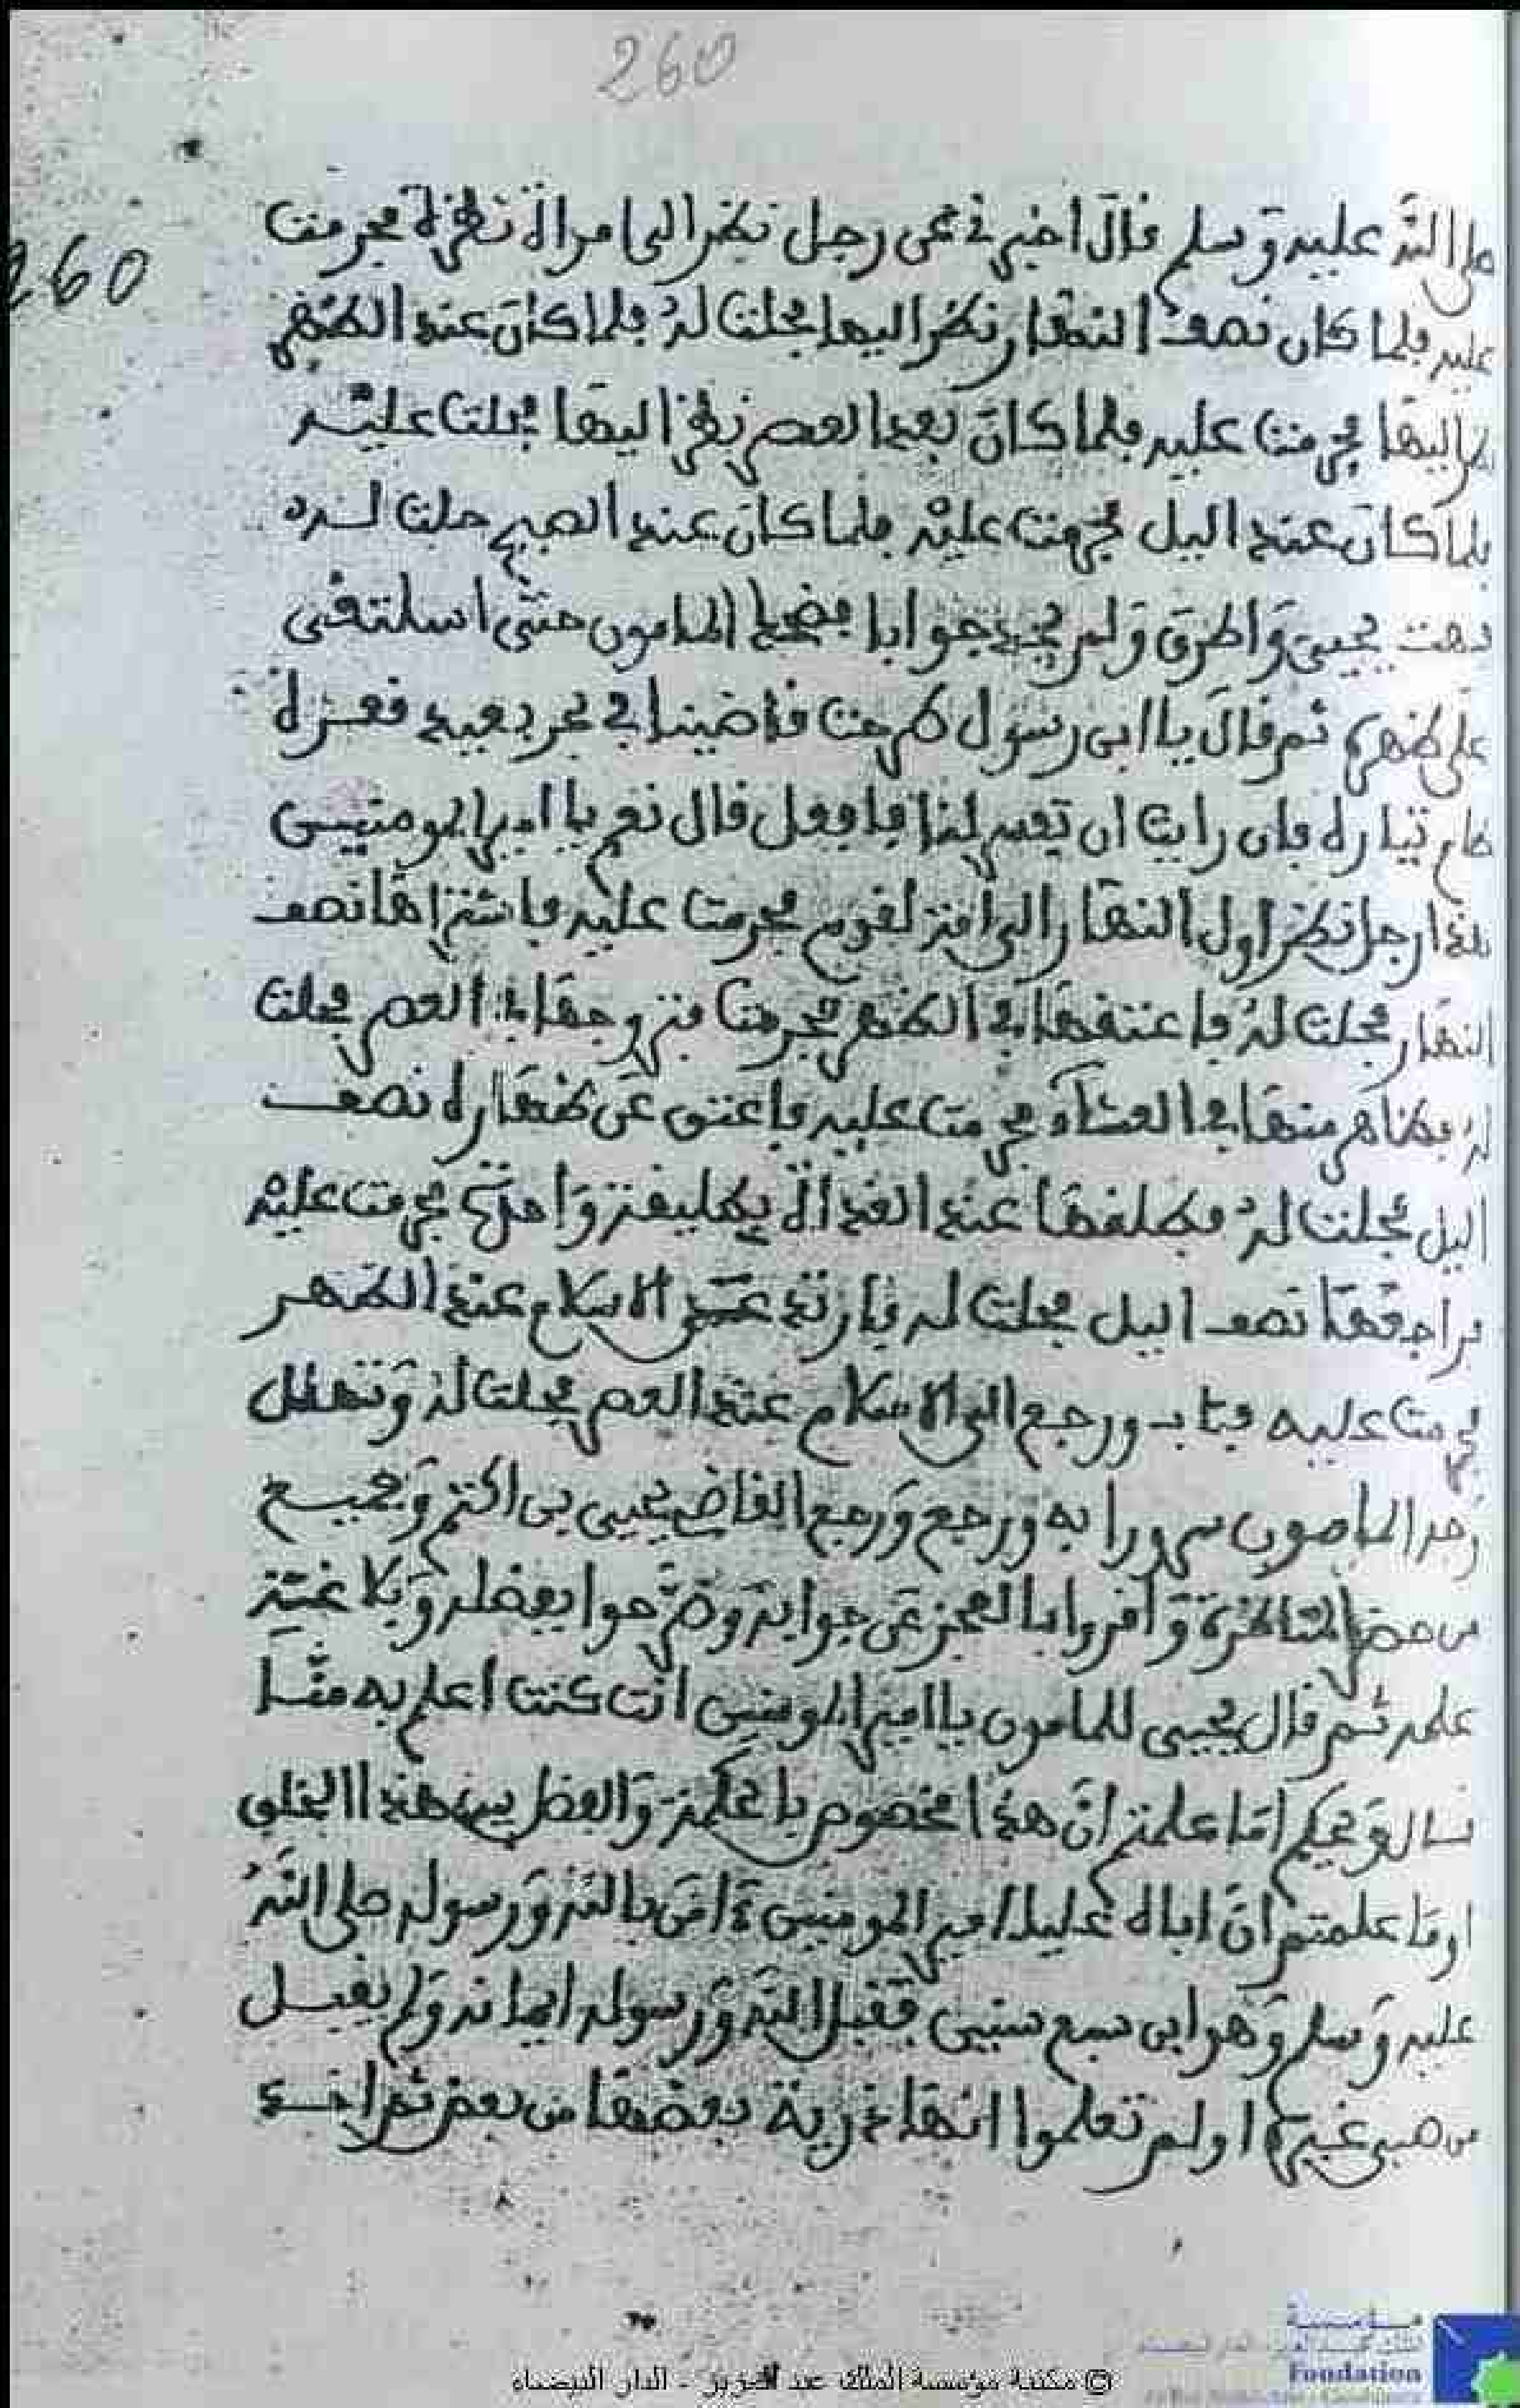 260
260
صلى الله عليه وسلم قال اخبرني عن رجل نظر الى امراة نظرة فحرمت
عليه فلما كان نصف النهار نظر اليها فحلت له فلما كان عند الظهر
نظر اليها فحرمت عليه فلما كان بعد العصر نظر اليها فحلت عليه
فلما كان عند اليل فحرمت عليه فلما كان عند الصبح حلت له
فبهت يحيى واطرق ولم يجد جوابا فضحك المامون حتى استلقى
على ظهره ثم قال يا ابن رسول طرحت قاضينا في بحر بعيد قعره
تياره فان رايت ان تفسر لنا فافعل قال نعم يا امير المومنين
هذا رجل نظر اول النهار الى امة لقوم فحرمت عليه فاشتراها نصف
النهار فحلت له فاعتقها في الظهر فحرمت فتزوجها العصر فحلت
له فظاهر منها في العشاء فحرمت عليه فاعتق عن ظهاره نصف
اليل فحلت له فطلقها عند الغداة تطليقة واحدة فحرمت عليه
فراجعها نصف اليل فحلت له فارتد عن الاسلام عند الظهر
فحرمت عليه فتاب ورجع الى الاسلام عند العصر فحلت له وتهلل
وجه المامون سرورا به ورجع ورجع القاضي يحيى بن اكتم وجميع
من حضر المناظرة واقروا بالعجز عن جوابه بفضله وبلاغة
علمه ثم قال يحيى للمامون يا امير المومنين انت كنت اعلم به منا
فسا ويحكم اما علمتم ان هذا مخصوص بالحكمة والفضل بين هذا الخلق
اوما علمتم ان اباه عليا امير المومنين ءامن بالله ورسوله صلى الله
عليه وسلم وهو ابن سبع سنين فقبل الله ورسوله ايمانه ولم يقبل
من صبي غيره اولم تعلموا انها ذرية بعضها من بعض ثم
© مكتبة مؤسسة الملك عبد العزيز - الدار البيضاء
Foundation